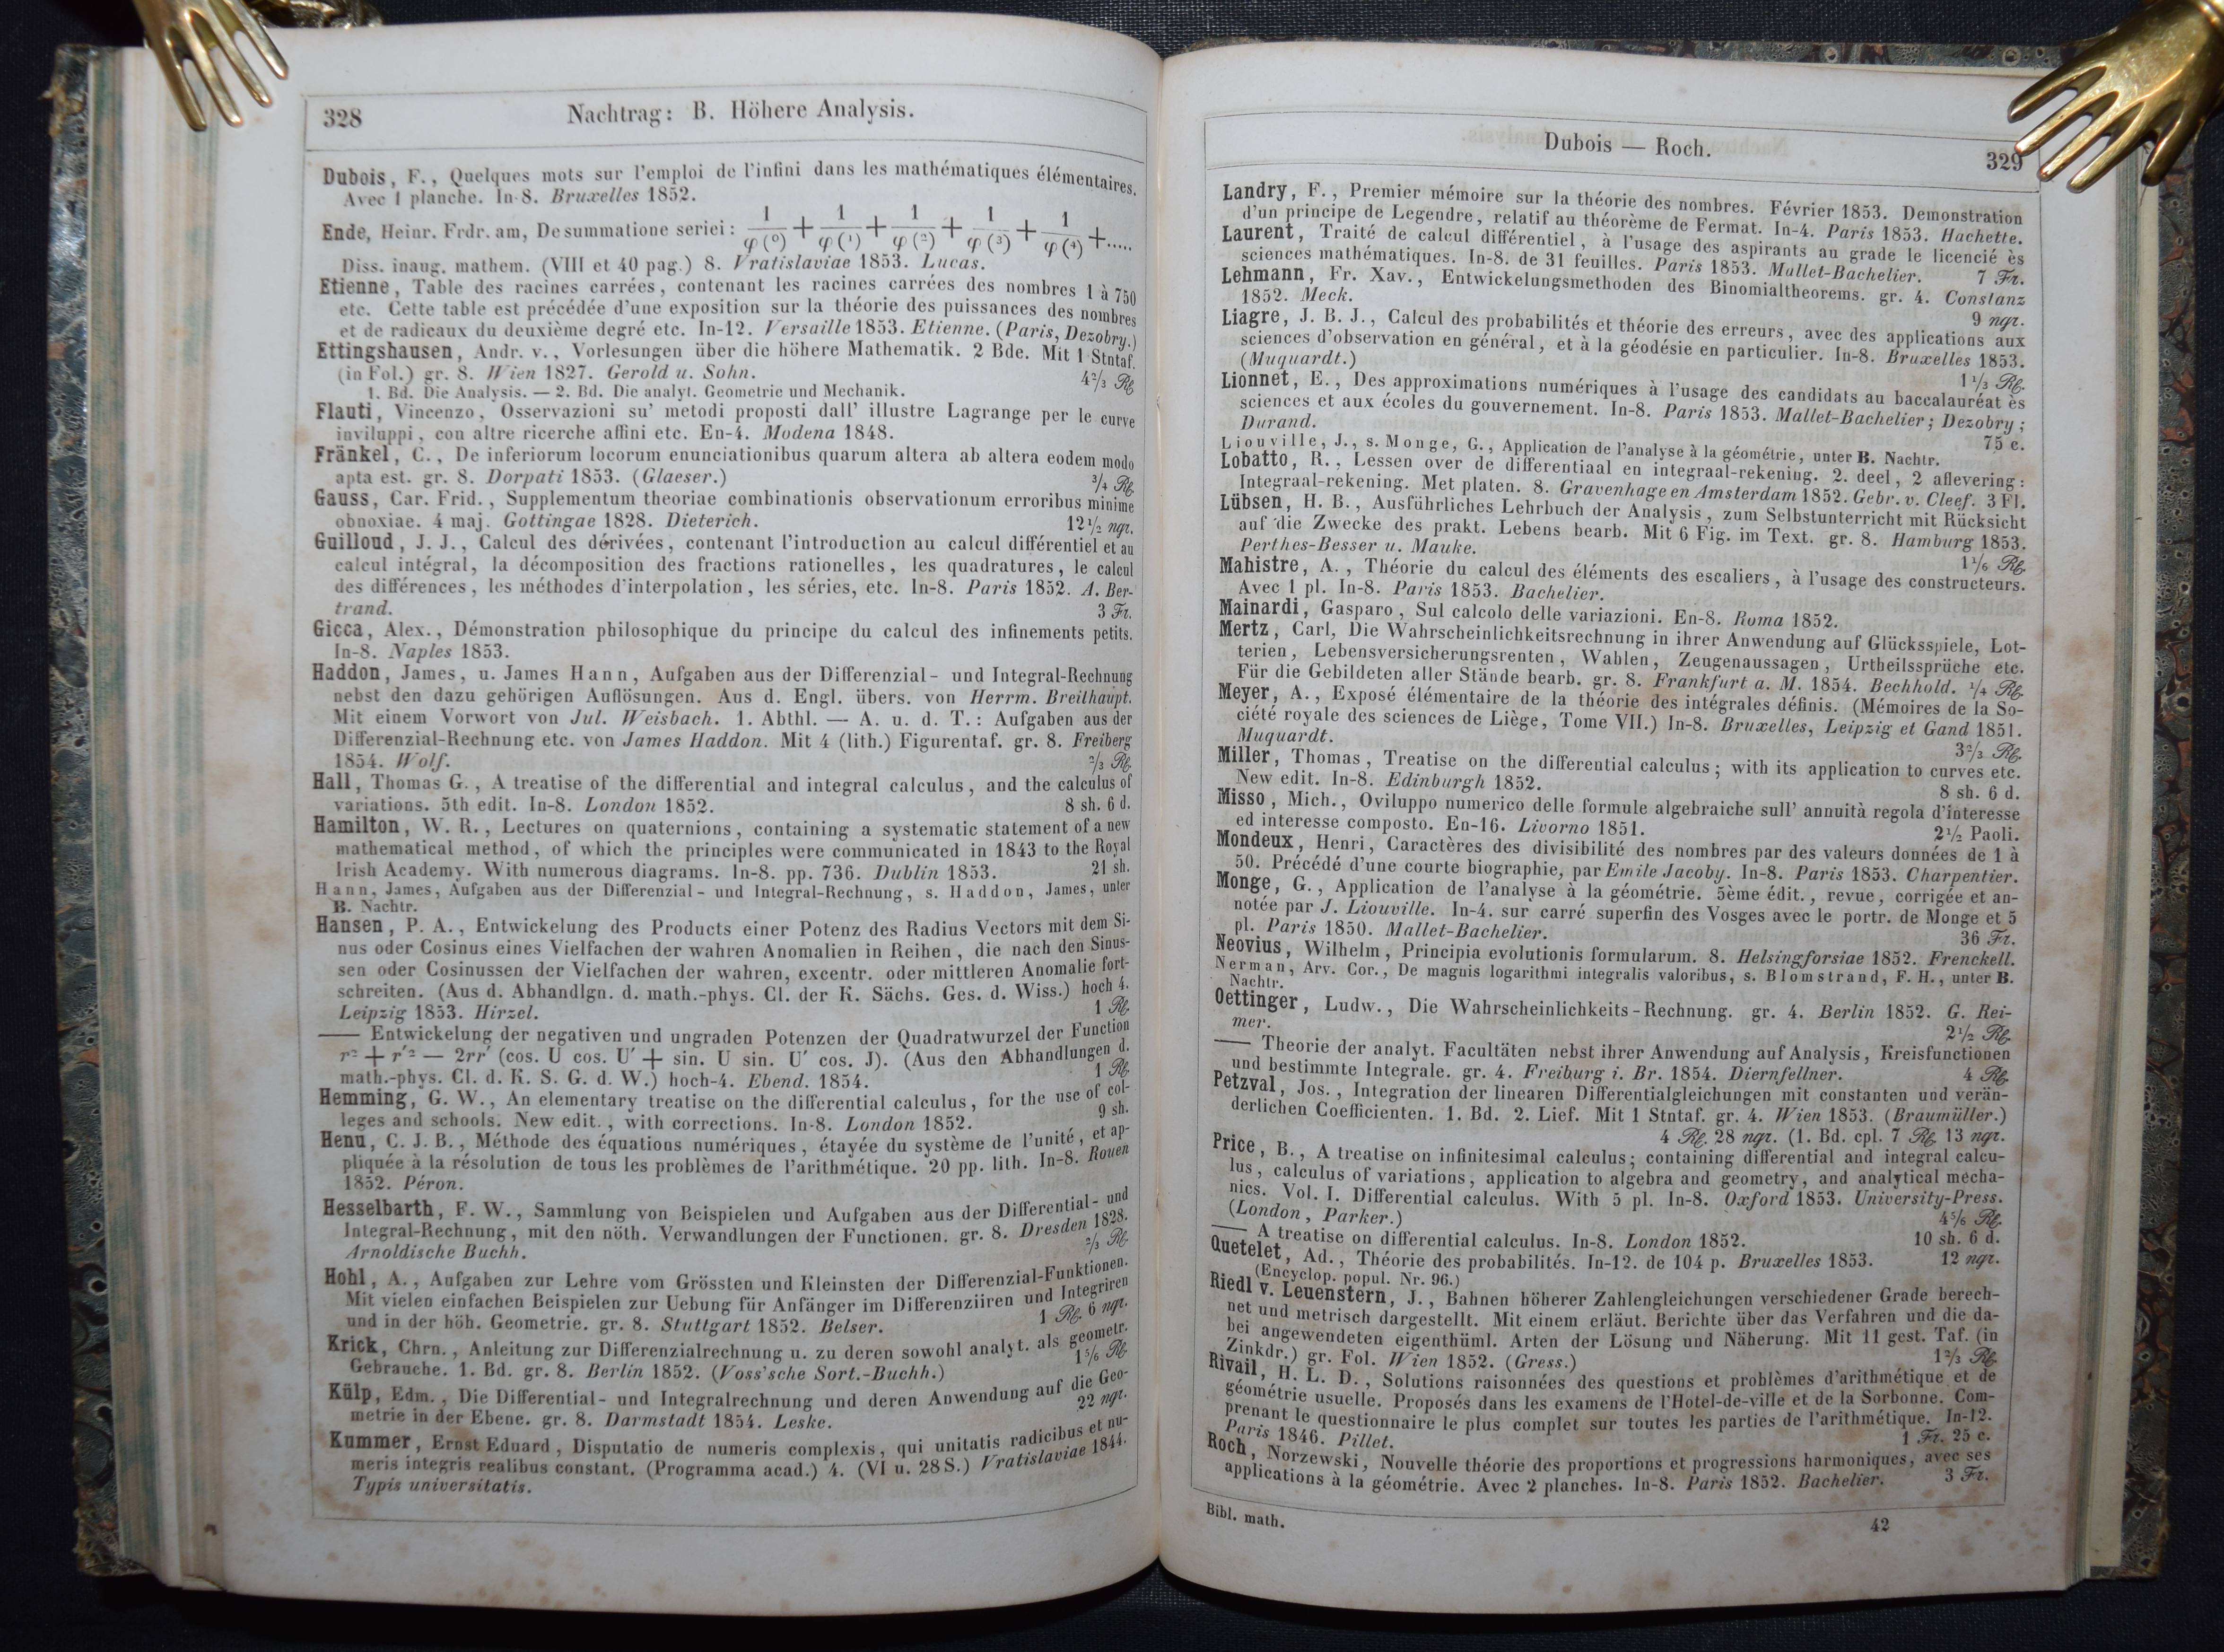 328
Nachtrag: B. Höhere Analysis.
Dubois, F., Quelques mots sur l'emploi de l'infini dans les mathématiques élémentaires.
Avec 1 planche. In-8. Bruxelles 1852.
Ende, Heinr. Frdr. am, De summatione seriei: 1/φ(0) + 1/φ(1) + 1/φ(2) + 1/φ(3) + 1/φ(4) + .....
Diss. inaug. mathem. (VIII et 40 pag.) 8. Vratislaviae 1853. Lucas.
Etienne, Table des racines carrées, contenant les racines carrées des nombres 1 à 750
etc. Cette table est précédée d'une exposition sur la théorie des puissances des nombres
et de radicaux du deuxième degré etc. In-12. Versaille 1853. Etienne. (Paris, Dezobry.)
Ettingshausen, Andr. v., Vorlesungen über die höhere Mathematik. 2 Bde. Mit 1 Stntaf.
(in Fol.) gr. 8. Wien 1827. Gerold u. Sohn. 4 2/3 Rℓ.
1. Bd. Die Analysis. — 2. Bd. Die analyt. Geometrie und Mechanik.
Flauti, Vincenzo, Osservazioni su' metodi proposti dall' illustre Lagrange per le curve
inviluppi, con altre ricerche affini etc. En-4. Modena 1848.
Fränkel, C., De inferiorum locorum enunciationibus quarum altera ab altera eodem modo
apta est. gr. 8. Dorpati 1853. (Glaeser.) 3/4 Rℓ.
Gauss, Car. Frid., Supplementum theoriae combinationis observationum erroribus minime
obnoxiae. 4 maj. Gottingae 1828. Dieterich. 12 1/2 ngr.
Guilloud, J. J., Calcul des dérivées, contenant l'introduction au calcul différentiel et au
calcul intégral, la décomposition des fractions rationelles, les quadratures, le calcul
des différences, les méthodes d'interpolation, les séries, etc. In-8. Paris 1852. A. Ber-
trand. 3 Fr.
Gicca, Alex., Démonstration philosophique du principe du calcul des infinements petits.
In-8. Naples 1853.
Haddon, James, u. James Hann, Aufgaben aus der Differenzial- und Integral-Rechnung
nebst den dazu gehörigen Auflösungen. Aus d. Engl. übers. von Herrm. Breithaupt.
Mit einem Vorwort von Jul. Weisbach. 1. Abthl. — A. u. d. T.: Aufgaben aus der
Differenzial-Rechnung etc. von James Haddon. Mit 4 (lith.) Figurentaf. gr. 8. Freiberg
1854. Wolf. 2/3 Rℓ.
Hall, Thomas G., A treatise of the differential and integral calculus, and the calculus of
variations. 5th edit. In-8. London 1852. 8 sh. 6 d.
Hamilton, W. R., Lectures on quaternions, containing a systematic statement of a new
mathematical method, of which the principles were communicated in 1843 to the Royal
Irish Academy. With numerous diagrams. In-8. pp. 736. Dublin 1853. 21 sh.
Hann, James, Aufgaben aus der Differenzial- und Integral-Rechnung, s. Haddon, James, unter
B. Nachtr.
Hansen, P. A., Entwickelung des Products einer Potenz des Radius Vectors mit dem Si-
nus oder Cosinus eines Vielfachen der wahren Anomalien in Reihen, die nach den Sinus-
sen oder Cosinussen der Vielfachen der wahren, excentr. oder mittleren Anomalie fort-
schreiten. (Aus d. Abhandlgn. d. math.-phys. Cl. der K. Sächs. Ges. d. Wiss.) hoch 4.
Leipzig 1853. Hirzel. 1 Rℓ.
—— Entwickelung der negativen und ungraden Potenzen der Quadratwurzel der Function
r² + r'² — 2rr' (cos. U cos. U' + sin. U sin. U' cos. J). (Aus den Abhandlungen d.
math.-phys. Cl. d. K. S. G. d. W.) hoch-4. Ebend. 1854. 1 Rℓ.
Hemming, G. W., An elementary treatise on the differential calculus, for the use of col-
leges and schools. New edit., with corrections. In-8. London 1852. 9 sh.
Henu, C. J. B., Méthode des équations numériques, étayée du système de l'unité, et ap-
pliquée à la résolution de tous les problèmes de l'arithmétique. 20 pp. lith. In-8. Rouen
1852. Péron.
Hesselbarth, F. W., Sammlung von Beispielen und Aufgaben aus der Differential- und
Integral-Rechnung, mit den nöth. Verwandlungen der Functionen. gr. 8. Dresden 1828.
Arnoldische Buchh. 2/3 Rℓ.
Hohl, A., Aufgaben zur Lehre vom Grössten und Kleinsten der Differenzial-Funktionen.
Mit vielen einfachen Beispielen zur Uebung für Anfänger im Differenziiren und Integriren
und in der höh. Geometrie. gr. 8. Stuttgart 1852. Belser. 1 Rℓ. 6 ngr.
Krick, Chrn., Anleitung zur Differenzialrechnung u. zu deren sowohl analyt. als geometr.
Gebrauche. 1. Bd. gr. 8. Berlin 1852. (Voss'sche Sort.-Buchh.) 1 5/6 Rℓ.
Külp, Edm., Die Differential- und Integralrechnung und deren Anwendung auf die Geo-
metrie in der Ebene. gr. 8. Darmstadt 1854. Leske. 22 ngr.
Kummer, Ernst Eduard, Disputatio de numeris complexis, qui unitatis radicibus et nu-
meris integris realibus constant. (Programma acad.) 4. (VI u. 28 S.) Vratislaviae 1844.
Typis universitatis.
Dubois — Roch.
329
Landry, F., Premier mémoire sur la théorie des nombres. Février 1853. Demonstration
d'un principe de Legendre, relatif au théorème de Fermat. In-4. Paris 1853. Hachette.
Laurent, Traité de calcul différentiel, à l'usage des aspirants au grade le licencié ès
sciences mathématiques. In-8. de 31 feuilles. Paris 1853. Mallet-Bachelier. 7 Fr.
Lehmann, Fr. Xav., Entwickelungsmethoden des Binomialtheorems. gr. 4. Constanz
1852. Meck. 9 ngr.
Liagre, J. B. J., Calcul des probabilités et théorie des erreurs, avec des applications aux
sciences d'observation en général, et à la géodésie en particulier. In-8. Bruxelles 1853.
(Muquardt.) 1 1/3 Rℓ.
Lionnet, E., Des approximations numériques à l'usage des candidats au baccalauréat ès
sciences et aux écoles du gouvernement. In-8. Paris 1853. Mallet-Bachelier; Dezobry;
Durand. 75 c.
Liouville, J., s. Monge, G., Application de l'analyse à la géométrie, unter B. Nachtr.
Lobatto, R., Lessen over de differentiaal en integraal-rekening. 2. deel, 2 aflevering:
Integraal-rekening. Met platen. 8. Gravenhage en Amsterdam 1852. Gebr. v. Cleef. 3 Fl.
Lübsen, H. B., Ausführliches Lehrbuch der Analysis, zum Selbstunterricht mit Rücksicht
auf die Zwecke des prakt. Lebens bearb. Mit 6 Fig. im Text. gr. 8. Hamburg 1853.
Perthes-Besser u. Mauke. 1 1/6 Rℓ.
Mahistre, A., Théorie du calcul des éléments des escaliers, à l'usage des constructeurs.
Avec 1 pl. In-8. Paris 1853. Bachelier.
Mainardi, Gasparo, Sul calcolo delle variazioni. En-8. Roma 1852.
Mertz, Carl, Die Wahrscheinlichkeitsrechnung in ihrer Anwendung auf Glücksspiele, Lot-
terien, Lebensversicherungsrenten, Wahlen, Zeugenaussagen, Urtheilssprüche etc.
Für die Gebildeten aller Stände bearb. gr. 8. Frankfurt a. M. 1854. Bechhold. 1/4 Rℓ.
Meyer, A., Exposé élémentaire de la théorie des intégrales définis. (Mémoires de la So-
ciété royale des sciences de Liège, Tome VII.) In-8. Bruxelles, Leipzig et Gand 1851.
Muquardt. 3 2/3 Rℓ.
Miller, Thomas, Treatise on the differential calculus; with its application to curves etc.
New edit. In-8. Edinburgh 1852. 8 sh. 6 d.
Misso, Mich., Oviluppo numerico delle formule algebraiche sull' annuità regola d'interesse
ed interesse composto. En-16. Livorno 1851. 2 1/2 Paoli.
Mondeux, Henri, Caractères des divisibilité des nombres par des valeurs données de 1 à
50. Précédé d'une courte biographie, par Emile Jacoby. In-8. Paris 1853. Charpentier.
Monge, G., Application de l'analyse à la géométrie. 5ème édit., revue, corrigée et an-
notée par J. Liouville. In-4. sur carré superfin des Vosges avec le portr. de Monge et 5
pl. Paris 1850. Mallet-Bachelier. 36 Fr.
Neovius, Wilhelm, Principia evolutionis formularum. 8. Helsingforsiae 1852. Frenckell.
Nerman, Arv. Cor., De magnis logarithmi integralis valoribus, s. Blomstrand, F. H., unter B.
Nachtr.
Oettinger, Ludw., Die Wahrscheinlichkeits-Rechnung. gr. 4. Berlin 1852. G. Rei-
mer. 2 1/2 Rℓ.
—— Theorie der analyt. Facultäten nebst ihrer Anwendung auf Analysis, Kreisfunctionen
und bestimmte Integrale. gr. 4. Freiburg i. Br. 1854. Diernfellner. 4 Rℓ.
Petzval, Jos., Integration der linearen Differentialgleichungen mit constanten und verän-
derlichen Coefficienten. 1. Bd. 2. Lief. Mit 1 Stntaf. gr. 4. Wien 1853. (Braumüller.)
4 Rℓ. 28 ngr. (1. Bd. cpl. 7 Rℓ. 13 ngr.
Price, B., A treatise on infinitesimal calculus; containing differential and integral calcu-
lus, calculus of variations, application to algebra and geometry, and analytical mecha-
nics. Vol. I. Differential calculus. With 5 pl. In-8. Oxford 1853. University-Press.
(London, Parker.) 4 5/6 Rℓ.
—— A treatise on differential calculus. In-8. London 1852. 10 sh. 6 d.
Quetelet, Ad., Théorie des probabilités. In-12. de 104 p. Bruxelles 1853. 12 ngr.
(Encyclop. popul. Nr. 96.)
Riedl v. Leuenstern, J., Bahnen höherer Zahlengleichungen verschiedener Grade berech-
net und metrisch dargestellt. Mit einem erläut. Berichte über das Verfahren und die da-
bei angewendeten eigenthüml. Arten der Lösung und Näherung. Mit 11 gest. Taf. (in
Zinkdr.) gr. Fol. Wien 1852. (Gress.) 1 2/3 Rℓ.
Rivail, H. L. D., Solutions raisonnées des questions et problèmes d'arithmétique et de
géométrie usuelle. Proposés dans les examens de l'Hotel-de-ville et de la Sorbonne. Com-
prenant le questionnaire le plus complet sur toutes les parties de l'arithmétique. In-12.
Paris 1846. Pillet. 1 Fr. 25 c.
Roch, Norzewski, Nouvelle théorie des proportions et progressions harmoniques, avec ses
applications à la géométrie. Avec 2 planches. In-8. Paris 1852. Bachelier. 3 Fr.
Bibl. math.
42